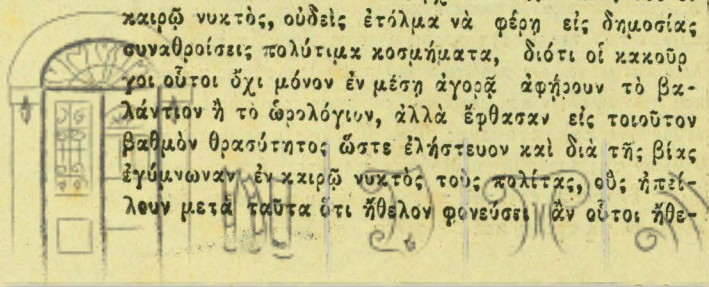 καιρῷ νυκτὸς, οὐδεὶς ἐτόλμα νὰ φέρῃ εἰς δημοσίας
συναθροίσεις πολύτιμα κοσμήματα, διότι οἱ κακοῦρ
γοι οὗτοι ὄχι μόνον ἐν μέσῃ ἀγορᾷ ἀφῄρουν τὸ βα-
λάντιον ἢ τὸ ὡρολόγιον, ἀλλὰ ἔφθασαν εἰς τοιοῦτον
βαθμὸν θρασύτητος ὥστε ἐλήστευον καὶ διὰ τῆς βίας
ἐγύμνωναν ἐν καιρῷ νυκτὸς τοὺς πολίτας, οὓς ἠπεί-
λουν μετὰ ταῦτα ὅτι ἤθελον φονεύσει ἂν οὗτοι ἤθε-